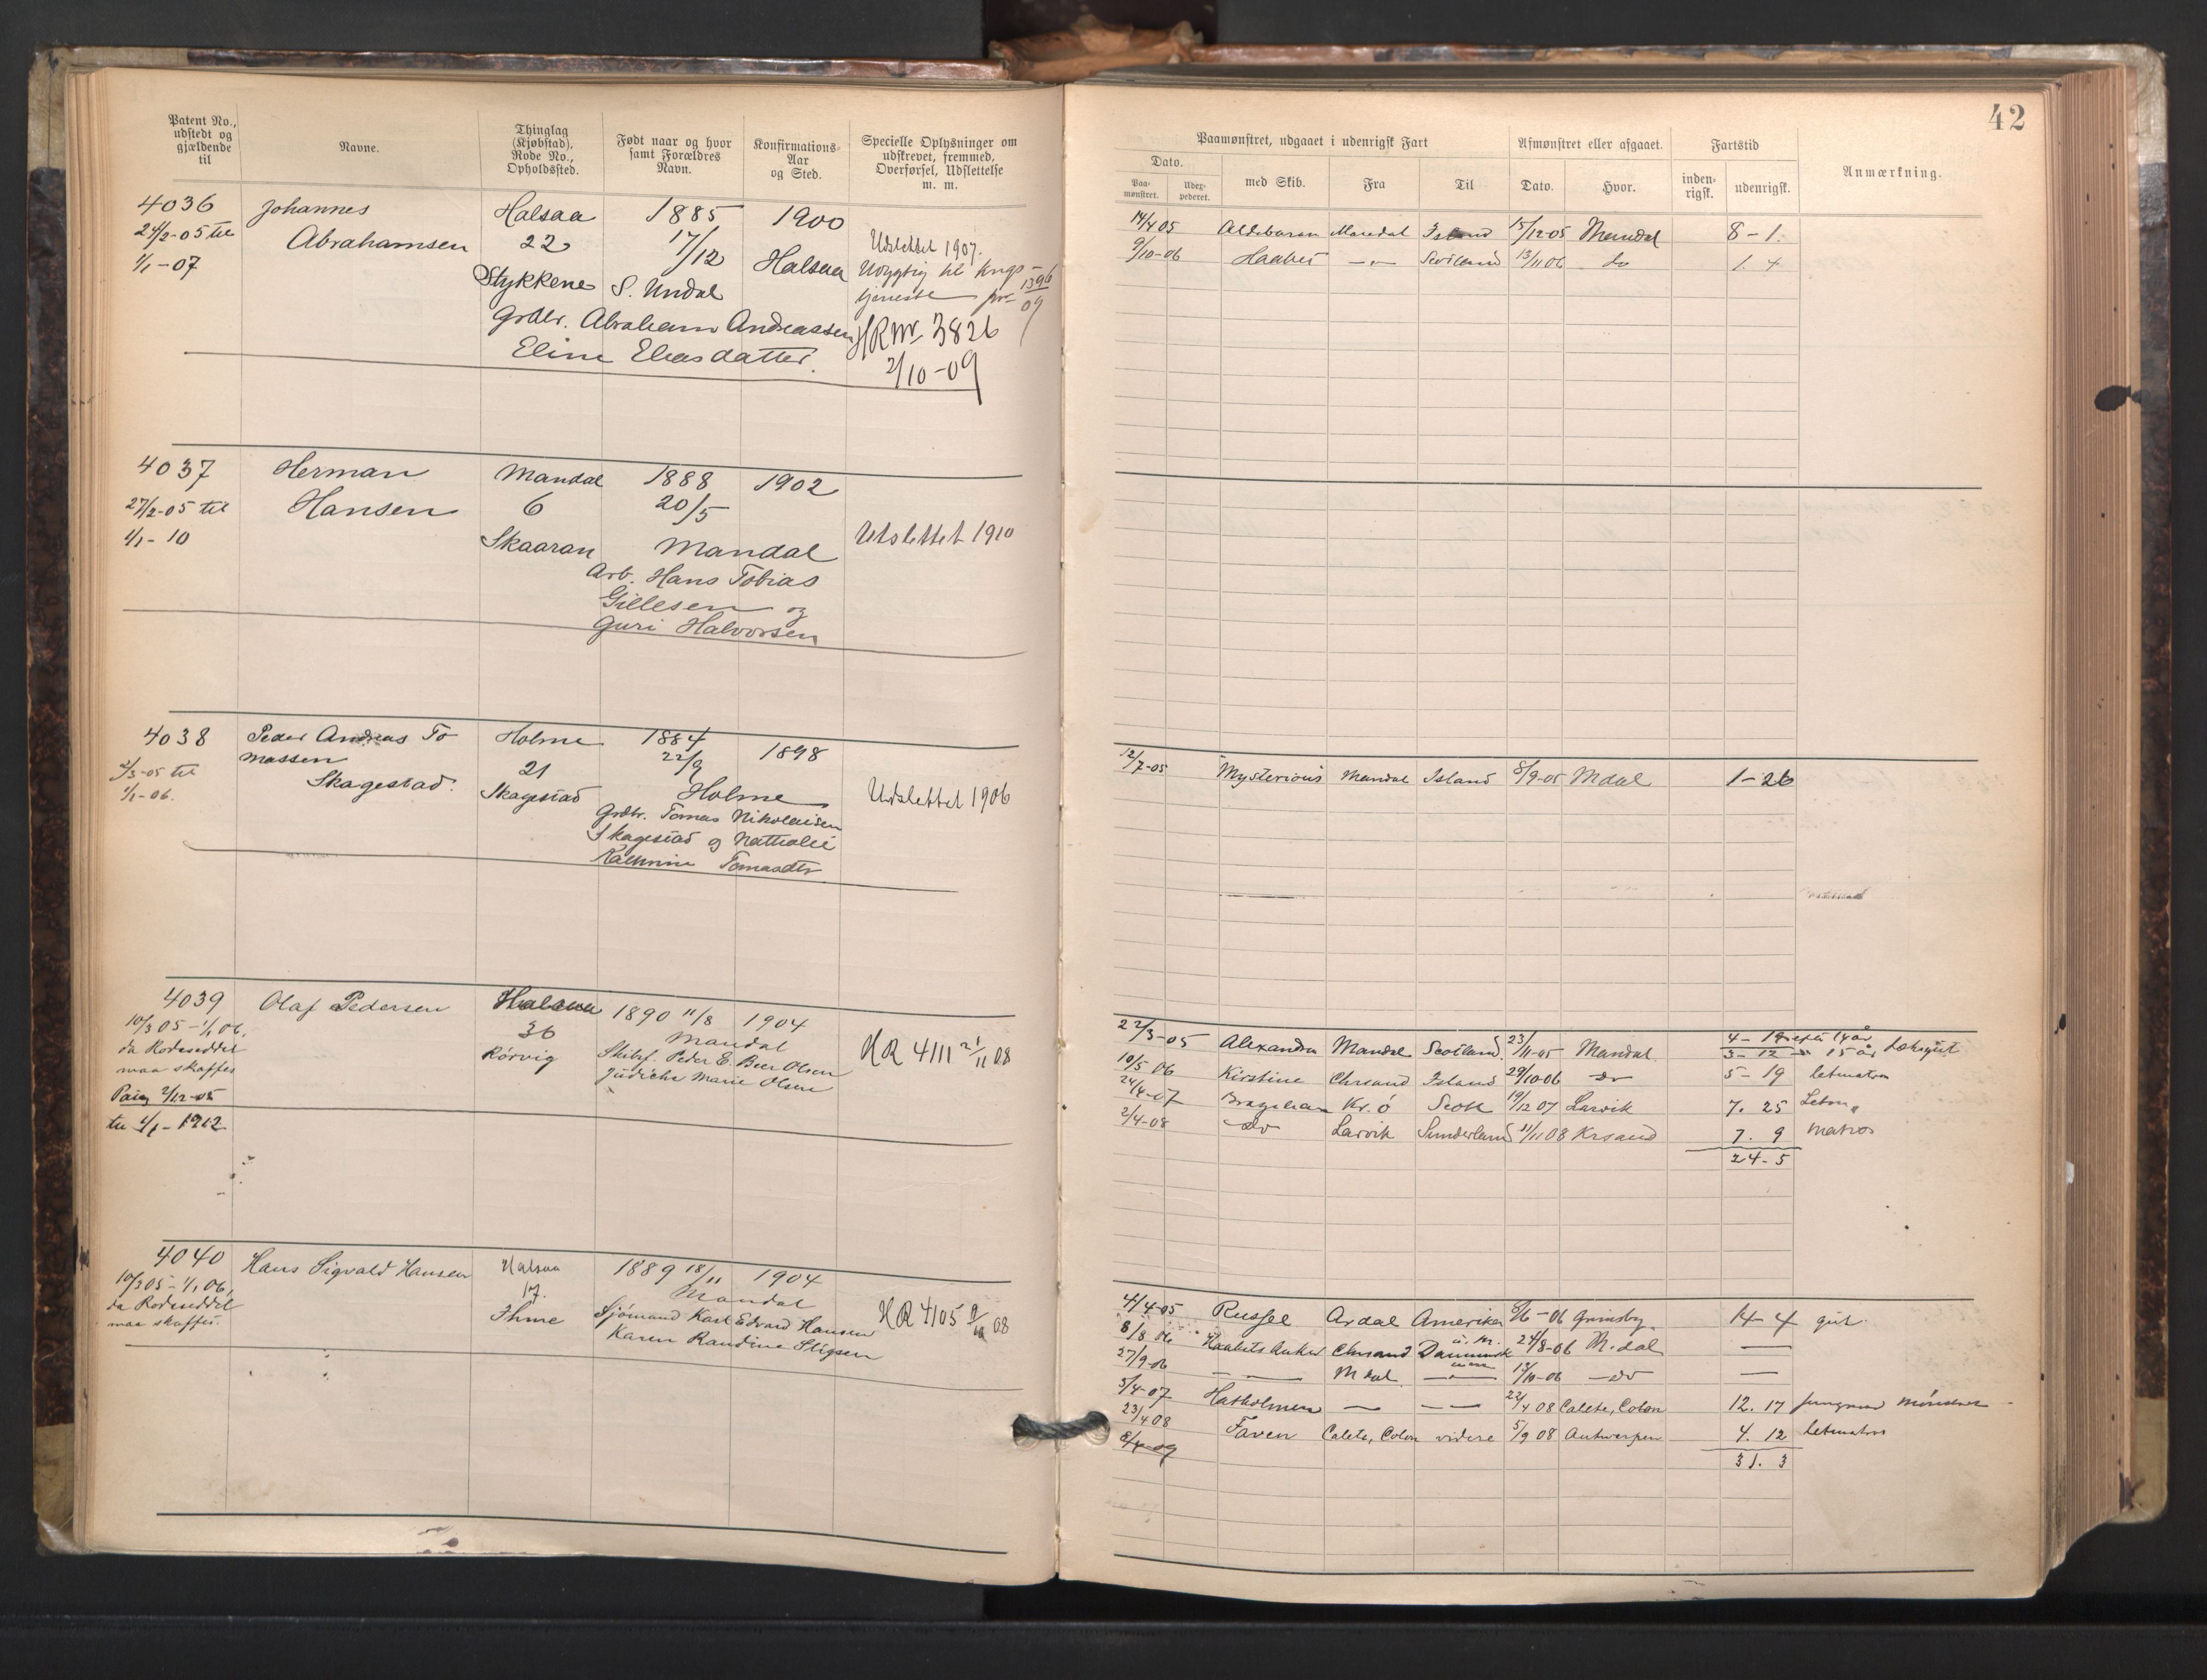 Patent No., udstedt og gjældende til
Navne.
Thinglag (Kjøbstad), Rode No., Opholdssted.
Født naar og hvor samt Forældres Navn.
Konfirmations-Aar og Sted.
Specielle Oplysninger om udskrevet, fremmed, Overførsel, Udslettelse m. m.
4036 Johannes Halsaa 1885 1900
24/2-05 til Abrahamsen 22 17/12 Halsaa Udslettet 1907.
1/1-07 Stykkene S. Undal Udygtig til krigs-
tjeneste pr 1396/09
Grdbr. Abraham Andreassen HR Nr 3826
Eline Eliasdatter. 2/10-09
4037 Herman Mandal 1888 1902
27/2-05 til Hansen 6 20/5
1/1-10 Skaaran Mandal Udslettet 1910
Arb. Hans Tobias
Gillesen og
Guri Halvorsen
4038 Peder Andreas To Holme 1884 1898
2/3-05 til massen 21 22/9
1/1-06. Skagestad. Skagestad Holme Udslettet 1906
Grdbr. Tomas Nikolaisen
Skagestad og Nathalie
Kathrine Tomasdtr
4039 Olaf Pedersen Halsaa 1890 11/8 1904
10/3 05-1/1 06, 36 Mandal
da Rodeseddel Rørvig Skibsf. Peder E. Beer Olsen HR 4111 21/11 08
maa skaffes Marie Olsen
2/12-05
til 1/1-1912
4040 Hans Sigvald Hansen Halsaa 1889 18/11 1904
10/3 05-1/1 06, 17. Mandal
da Rodeseddel Ihme Sjømand Karl Edvard Hansen HR 4105 08
maa skaffes. Karen Randine Stigsen
42
Paamønstret, udgaaet i udenrigsk Fart
Afmønstret eller afgaaet.
Fartstid
Anmærkning.
Dato.
Paa-mønstret.
Udex-pederet.
med Skib.
Fra
Til
Dato.
Hvor.
inden-rigsk.
udenrigsk.
14/4 05 Aldebaran Mandal Island 15/12-05 Mandal 8-1.
9/10-06 Haabet —"— Scotland 13/11 06 do 1. 4
12/7-05 Mysterious Mandal Island 8/9-05 Mdal 1-26
22/3-05 Alexandra Mandal Scotland. 23/11-05 Mandal. 4-19 efter 14 år
3-12 " 15 år
10/5 06 Kirstine Chrsand Island 29/10-06 do 5-19 letmatros
24/4-07 Kr. ø Scotl 19/12 07 Larvik 7. 25 Letm "
2/4-08 do Larvik Sunderland 11/11 08 Krsand 7. 9 matros
24-5
4/4-05 Russel Ardal Amerika 6/6-06 Grimsby. 14-4 gut.
8/8 06 Haabets Anker Chrsand Danmark 24/8-06 M.dal —
27/9-06 —— Mdal. —— 13/10-06 —do —
5/4-07 Hatholmen — —— 22/4 08 Caleta, Colon 12. 17 jungmand
23/4 08 Faven Caleta, Colon videre 5/9 08 Antwerpen 4. 12 letmatros
31. 3